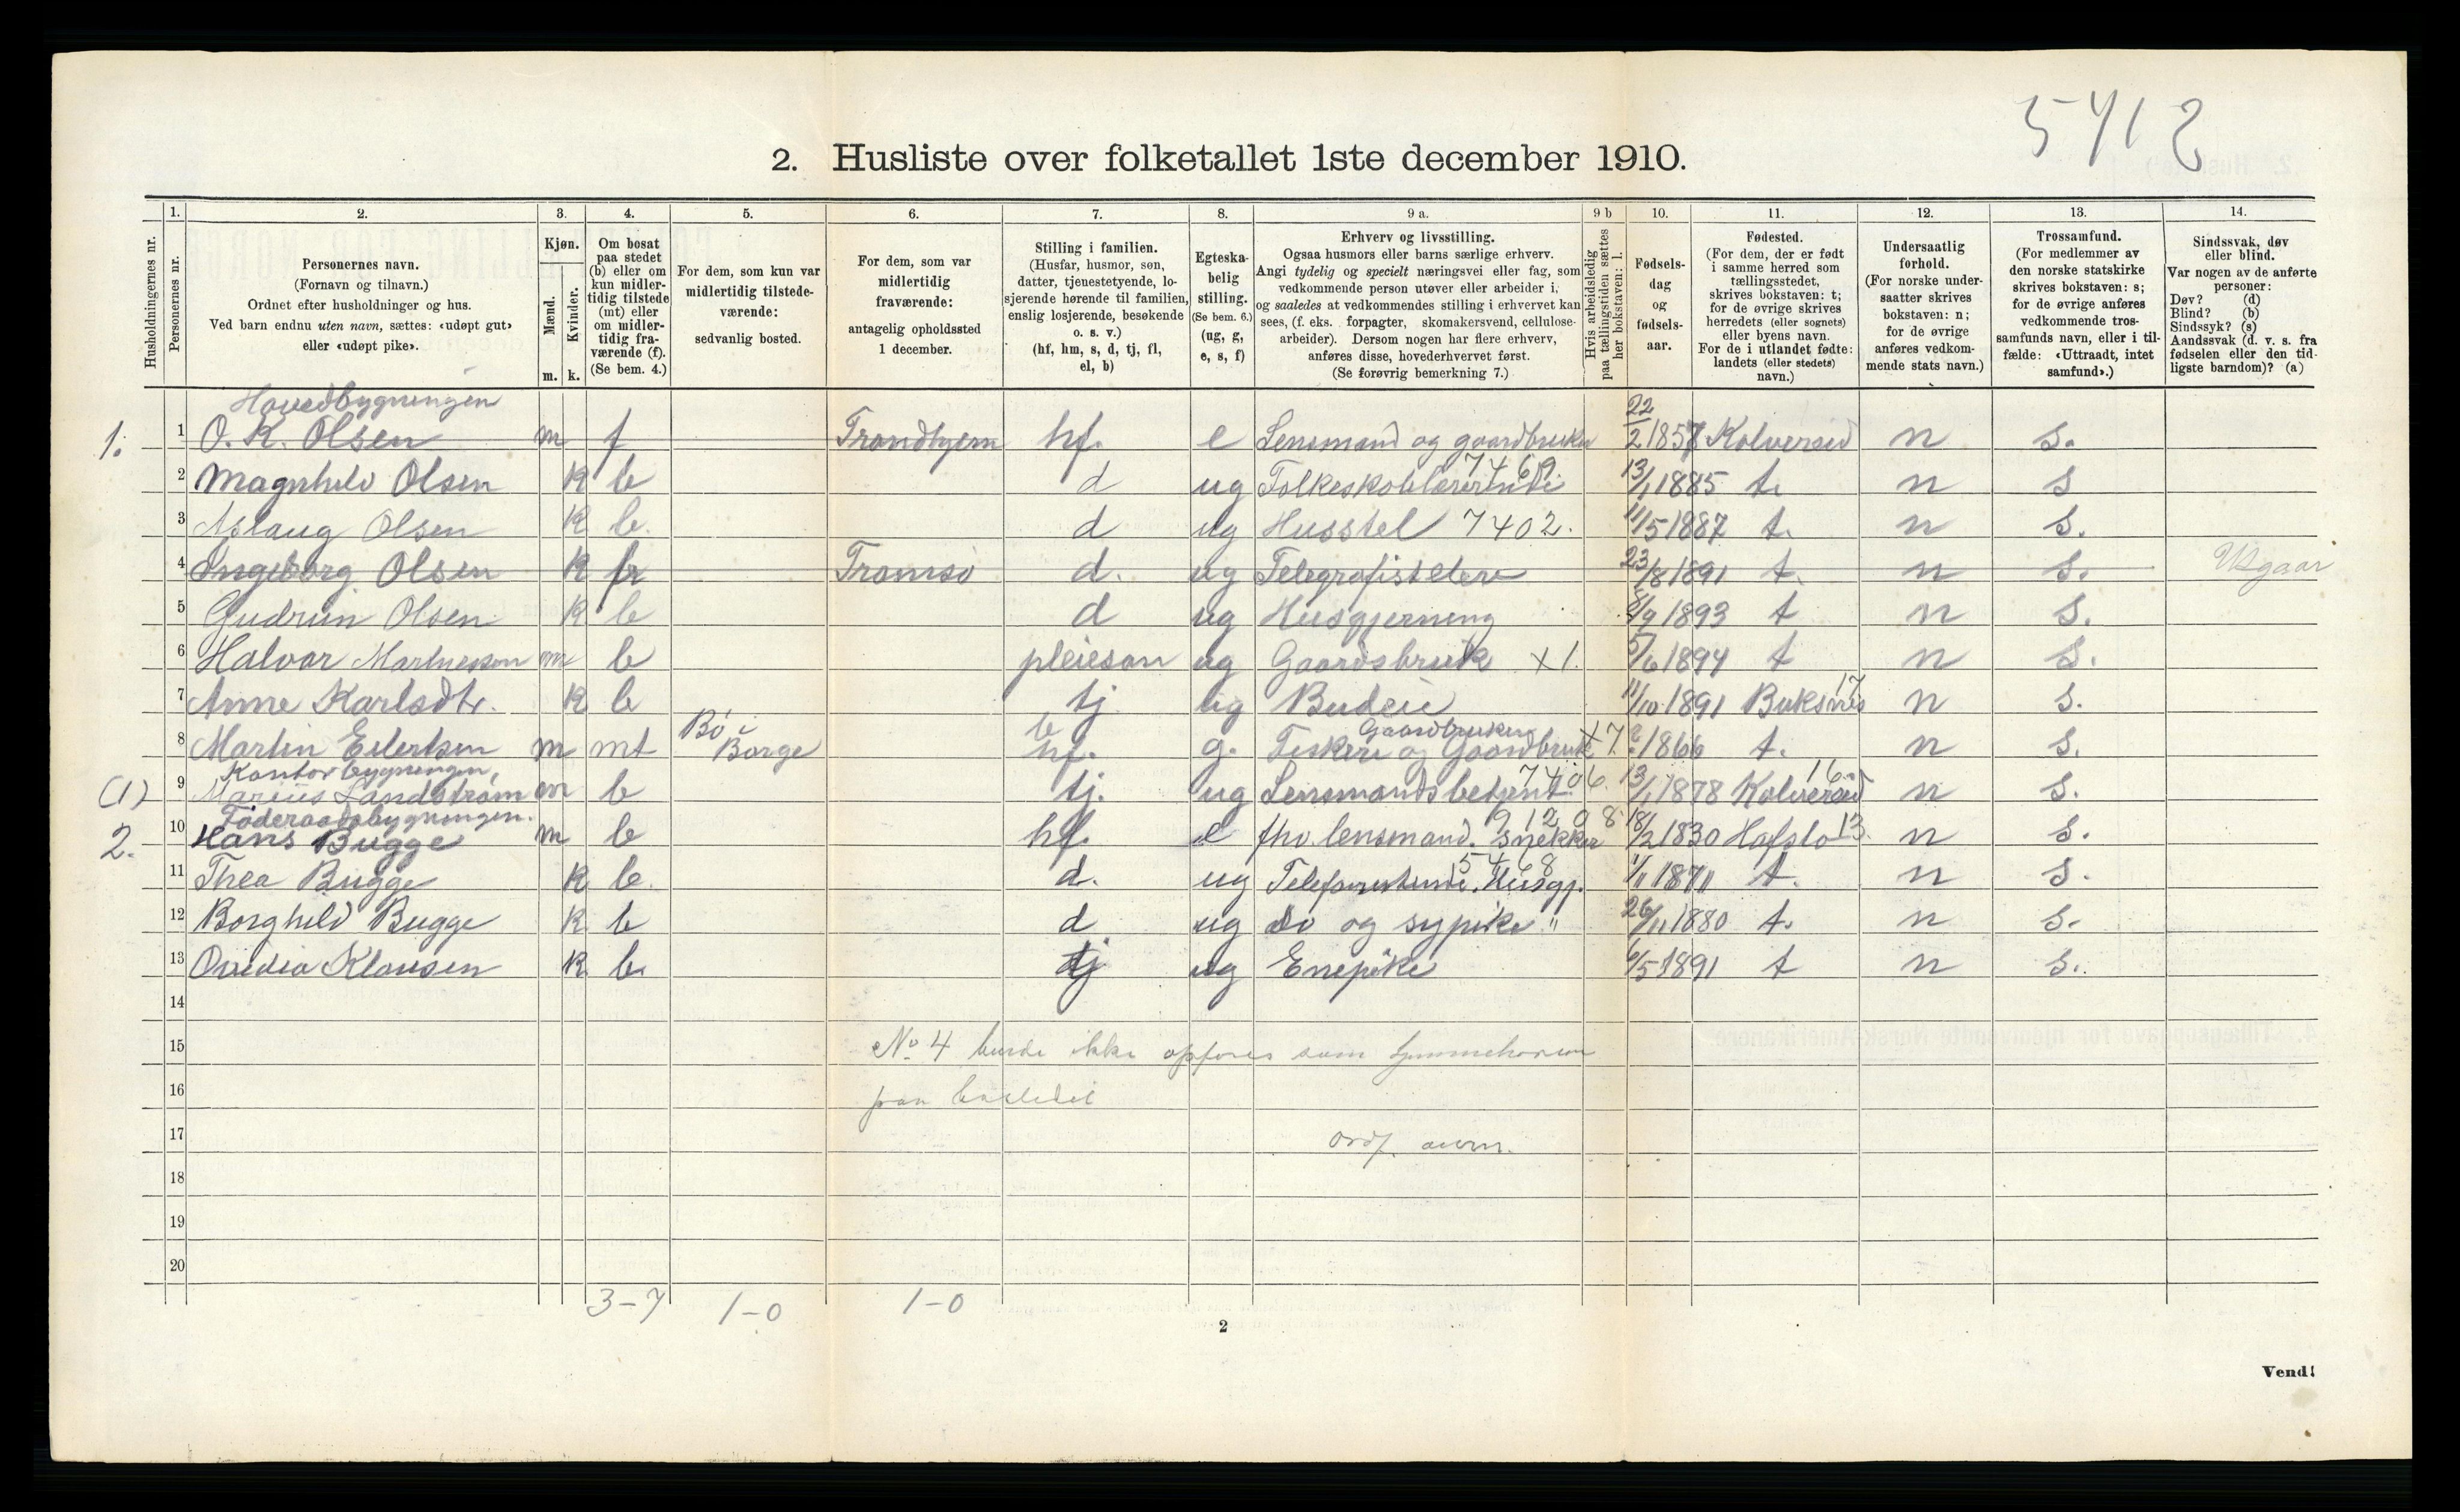 5412
2. Husliste over folketallet 1ste december 1910.
Husholdningernes nr.
1. Personernes nr.
2. Personernes navn. (Fornavn og tilnavn.) Ordnet efter husholdninger og hus. Ved barn endnu uten navn, sættes: «udøpt gut» eller «udøpt pike».
3. Kjøn. Mænd. m. Kvinder. k.
4. Om bosat paa stedet (b) eller om kun midlertidig tilstede (mt) eller om midlertidig fraværende (f). (Se bem. 4.)
5. For dem, som kun var midlertidig tilstedeværende: sedvanlig bosted.
6. For dem, som var midlertidig fraværende: antagelig opholdssted 1 december.
7. Stilling i familien. (Husfar, husmor, søn, datter, tjenestetyende, losjerende hørende til familien, enslig losjerende, besøkende o. s. v.) (hf, hm, s, d, tj, fl, el, b)
8. Egteskabelig stilling. (Se bem. 6.) (ug, g, e, s, f)
9 a. Erhverv og livsstilling. Ogsaa husmors eller barns særlige erhverv. Angi tydelig og specielt næringsvei eller fag, som vedkommende person utøver eller arbeider i, og saaledes at vedkommendes stilling i erhvervet kan sees, (f. eks. forpagter, skomakersvend, cellulosearbeider). Dersom nogen har flere erhverv, anføres disse, hovederhvervet først. (Se forøvrig bemerkning 7.)
9 b Hvis arbeidsledig paa tællingstiden sættes her bokstaven: l.
10. Fødselsdag og fødselsaar.
11. Fødested. (For dem, der er født i samme herred som tællingsstedet, skrives bokstaven: t; for de øvrige skrives herredets (eller sognets) eller byens navn. For de i utlandet fødte: landets (eller stedets) navn.)
12. Undersaatlig forhold. (For norske undersaatter skrives bokstaven: n; for de øvrige anføres vedkommende stats navn.)
13. Trossamfund. (For medlemmer av den norske statskirke skrives bokstaven: s; for de øvrige anføres vedkommende trossamfunds navn, eller i tilfælde: «Uttraadt, intet samfund».)
14. Sindssvak, døv eller blind. Var nogen av de anførte personer: Døv? (d) Blind? (b) Sindssyk? (s) Aandssvak (d. v. s. fra fødselen eller den tidligste barndom)? (a)
Hovedbygningen
1. 1 O. K. Olsen m f Trondhjem hf. e Lensmand og gaardbruker 22/2 1857 Kolvereid n s.
2 Magnhild Olsen K b d ug Folkeskolelærerinde 7469 13/1 1885 t. n s
3 Aslaug Olsen K b. d ug Husstel 7402. 11/5 1887 t. n s.
4 Ingeborg Olsen K fr Tromsø d. ug Telegrafistelev 23/8 1891 t. n s. Utgaar
5 Gudrun Olsen K b d ug Husgjerning 8/9 1893 t n s.
6 Halvar Martinesson m b pleiesøn ug Gaardsbruk x1. 5/6 1894 t n s.
7 Anne Karlsdtr. K b tj ug Budeie 11/10 1891 Buksnes 17 n s.
8 Martin Eilertsen m mt Bø i Borge b hf. g. Gaardbruker Fiskeri og Gaardbruk x7. ? 1866 t. n s.
Kontorbygningen,
(1) 9 Marius Landstrøm m b tj. ug Lensmandsbetjent 7406. 13/1 1878 Kolvereid 16 n s.
Føderaadsbygningen.
2. 10 Hans Bugge m b hf. e fhv. lensmand. snekker 91208 18/2 1830 Hafslo 13. n s.
11 Thea Bugge K b. d. ug Telefonistinde. Husgj. 5468 1/1 1871 t. n s.
12 Borghild Bugge K b d ug do og sypike " 26/11 1880 t. n s.
13 Ovidia Klausen K b. tj ug Enepike 6/5 1891 t n s.
14
15 No 4 burde ikke opføres som hjemmehørende
16 paa bostedet
17 Ordf. anm.
18
19
20
3-7 1-0 1-0
2
Vend!